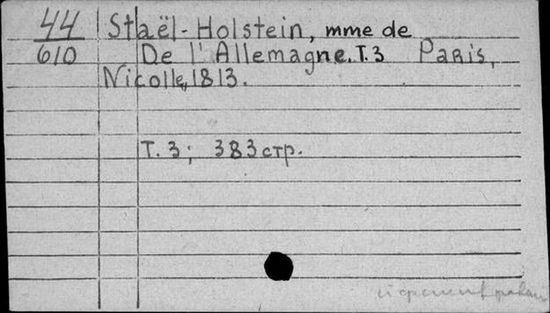 44 Staël-Holstein, mme de
610 De l'Allemagne. T.3 Paris,
Nicolle, 1813.
T. 3; 383 стр.